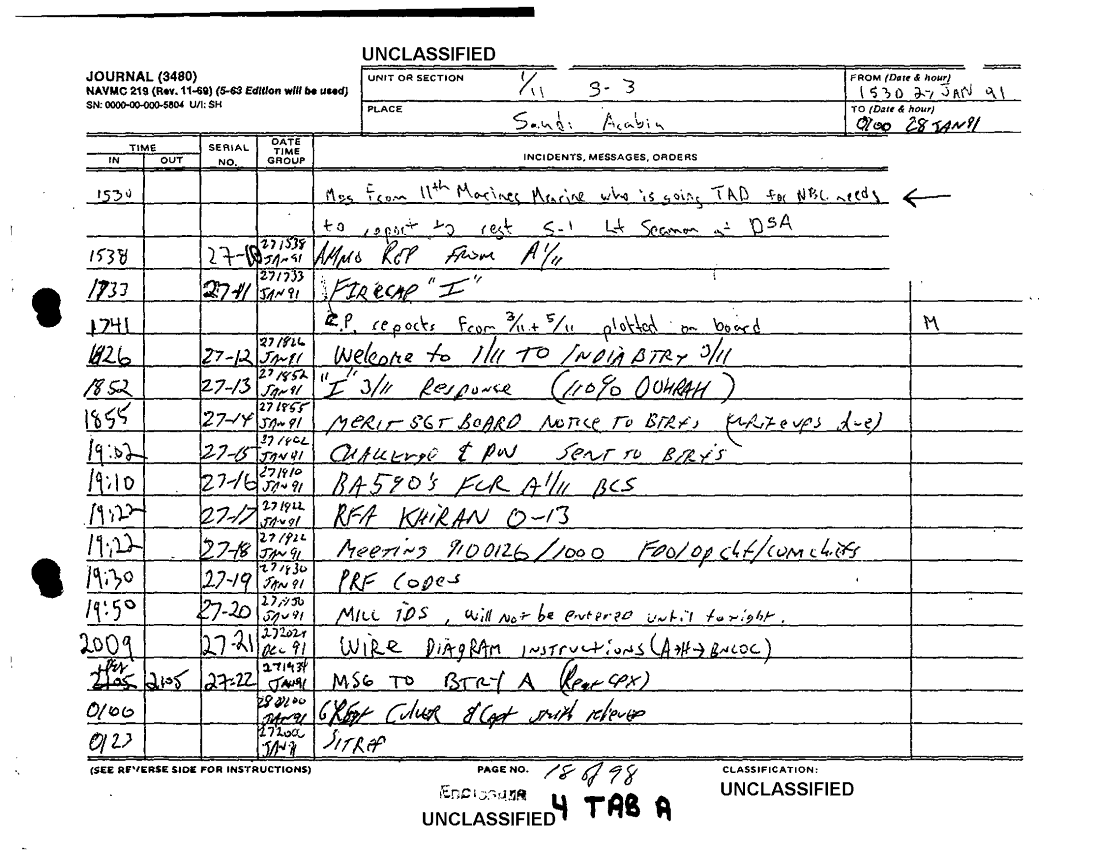 UNCLASSIFIED
JOURNAL (3480)
NAVMC 219 (Rev. 11-69) (5-63 Edition will be used)
SN: 0000-00-000-5804 U/I: SH
UNIT OR SECTION 1/11 S-3
FROM (Date & hour) 1530 27 JAN 91
PLACE Saudi Arabia
TO (Date & hour) 0100 28 JAN 91
TIME IN OUT SERIAL NO. DATE TIME GROUP INCIDENTS, MESSAGES, ORDERS
1530 Msg From 11th Marines Marine who is going TAD for NBC needs
to report to regt S-1 Lt Seamon at DSA
1538 27-10 271538 JAN 91 AMMO REP FROM A 1/11
1733 27-11 271733 JAN 91 FIRECAP "I"
1741 R.P. reports From 3/11 + 5/11 plotted on board M
1826 27-12 271826 JAN 91 Welcome to 1/11 TO INDIA BTRY 3/11
1852 27-13 271852 JAN 91 "I" 3/11 Response (110% OOHRAH)
1855 27-14 271855 JAN 91 MERIT SGT BOARD NOTICE TO BTRYs (write ups due)
19:02 27-15 271902 JAN 91 CHALLENGE & PW SENT TO BTRY'S
19:10 27-16 271910 JAN 91 BA590'S FOR A 1/11 BCS
19:22 27-17 271922 JAN 91 RFA KHIRAN 0-13
19:22 27-18 271922 JAN 91 Meeting 9100126/1000 FDO/op chf/comm chfs
19:30 27-19 271930 JAN 91 PRF Codes
19:50 27-20 271950 JAN 91 MILL IDS, will not be entered until tonight.
2009 27-21 DEC 91 WIRE DIAGRAM INSTRUCTIONS (A→H→BNLOC)
2105 2105 27-22 271934 JAN 91 MSG TO BTRY A (Rear CPX)
0100 280100 JAN 91 Culver & Capt Smith relieved
0123 JAN 91 SITREP
(SEE REVERSE SIDE FOR INSTRUCTIONS) PAGE NO. 18 of 98 CLASSIFICATION:
UNCLASSIFIED
Enclosure 4 TAB A
UNCLASSIFIED